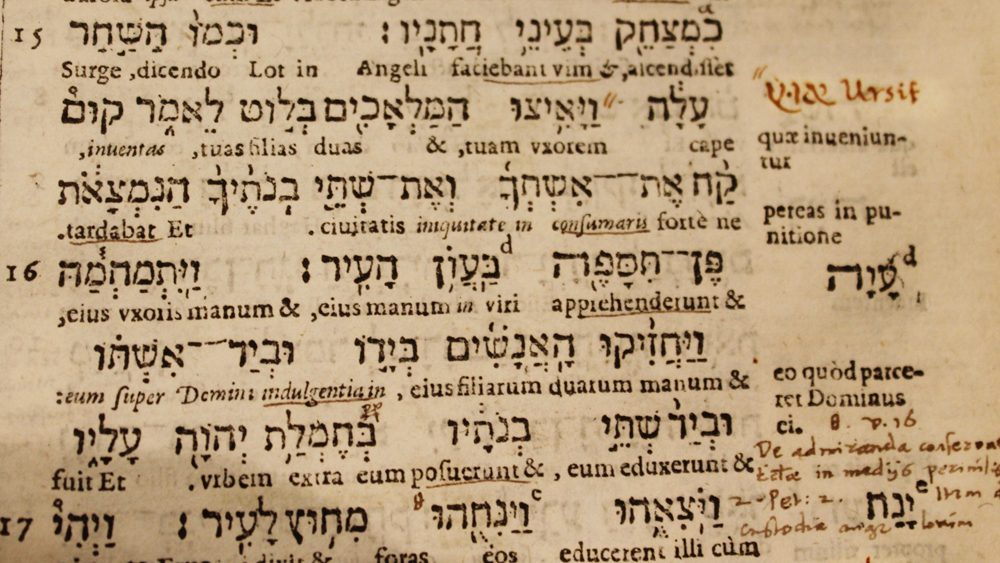 15 כִמְצַחֵק בְּעֵינֵי חֲתָנָיו׃ וּכְמוֹ הַשַּׁחַר
Surge ,dicendo Lot in Angeli faciebant vim &
עָלָה וַיָּאִיצוּ הַמַּלְאָכִים בְּלוֹט לֵאמֹר קוּם
,inuentas ,tuas filias duas & ,tuam vxorem cape
קַח אֶת־אִשְׁתְּךָ וְאֶת־שְׁתֵּי בְנֹתֶיךָ הַנִּמְצָאֹת
.tardabat Et .ciuitatis iniquitate in consumaris fortè ne
16 פֶּן־תִּסָּפֶה בַּעֲוֹן d הָעִיר׃ וַיִּתְמַהְמָהּ
,eius vxoris manum & ,eius manum in viri apprehenderunt &
וַיַּחֲזִיקוּ הָאֲנָשִׁים בְּיָדוֹ וּבְיַד־אִשְׁתּוֹ
:eum super Domini indulgentia in , eius filiarum duarum manum &
וּבְיַד שְׁתֵּי בְנֹתָיו בְּחֶמְלַת יְהוָה עָלָיו
fuit Et .vrbem extra eum posuerunt & , eum eduxerunt &
17 וַיֹּצִאֻהוּ וַיַּנִּחֻהוּ c מִחוּץ לָעִיר׃ וַיְהִי
& foras eos educerent illi cùm
quæ inueniun-
tur
pereas in pu-
nitione
d עָוָה
eo quòd parce-
ret Dominus
ei. v. 16
in medijs
2 Pet: 2.
custodia
e יָנַח